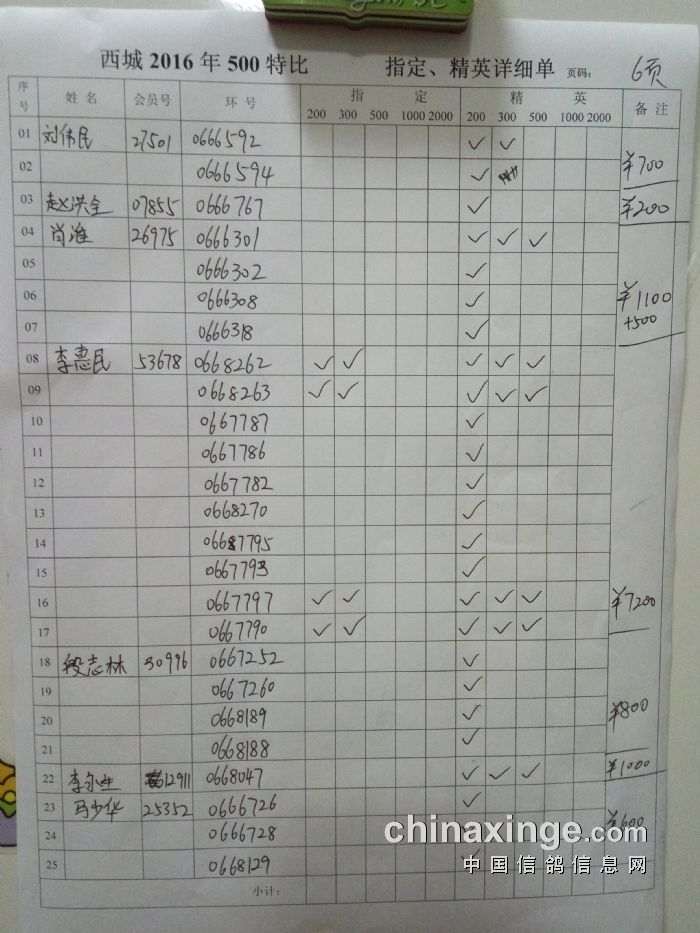 西城 2016 年 500 特比 指定、精英详细单 页码: 6页
序号 姓名 会员号 环号 指定 精英 备注
200 300 500 1000 2000 200 300 500 1000 2000
01 刘伟民 27501 0666592 ✓ ✓
02 0666594 ✓ ¥700
03 赵洪全 07855 0666767 ✓ ¥200
04 肖淮 26975 0666301 ✓ ✓ ✓
05 0666302 ✓
06 0666308 ✓ ¥1100
07 0666318 ✓ +500
08 李惠民 53678 0668262 ✓ ✓ ✓ ✓ ✓
09 0668263 ✓ ✓ ✓ ✓ ✓
10 0667787 ✓
11 0667786 ✓
12 0667782 ✓
13 0668270 ✓
14 0667795 ✓
15 0667793 ✓
16 0667797 ✓ ✓ ✓ ✓ ✓ ¥7200
17 0667790 ✓ ✓ ✓ ✓ ✓
18 段志林 30996 0667252 ✓
19 0667260 ✓
20 0668189 ✓ ¥800
21 0668188 ✓
22 12911 0668047 ✓ ✓ ✓ ¥1000
23 马少华 25352 0666726 ✓
24 0666728 ¥600
25 0668129 ✓
小计:
chinaxinge.com
中国信鸽信息网